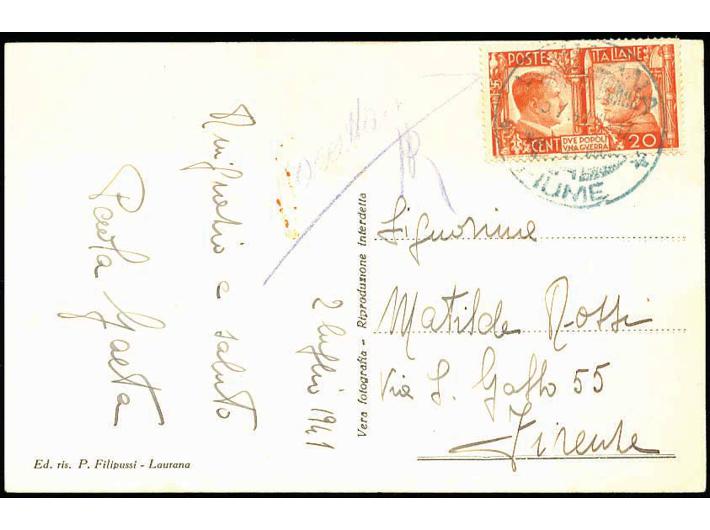 POSTE ITALIANE
CENT DVE POPOLI
VNA GVERRA 20
FIUME
Ringrazio e saluto
Paola Gaeta
2 luglio 1941
Vera fotografia - Riproduzione interdetta
Signorine
Matilde Rossi
Via S. Gallo 55
Firenze
Ed. ris. P. Filipussi - Laurana